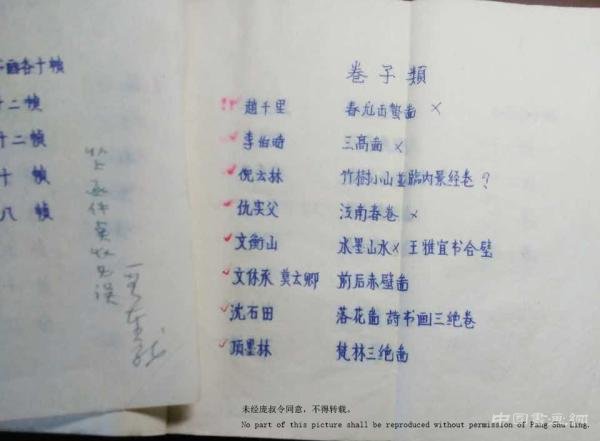 画各十帧
十二帧
十二帧
十 帧
八 帧
卷子類
趙千里 春龙出蟄啚 ×
李伯時 三高啚 ×
倪云林 竹樹小山並臨内景経卷？
仇实父 江南春卷 ×
文衡山 水墨山水× 王雅宜书合璧
文休承 莫云卿 前后赤壁啚
沈石田 落花啚 詩书画三绝卷
项墨林 梵林三绝啚
未经庞叔令同意，不得转载。
No part of this picture shall be reproduced without permission of Pang Shu Ling.